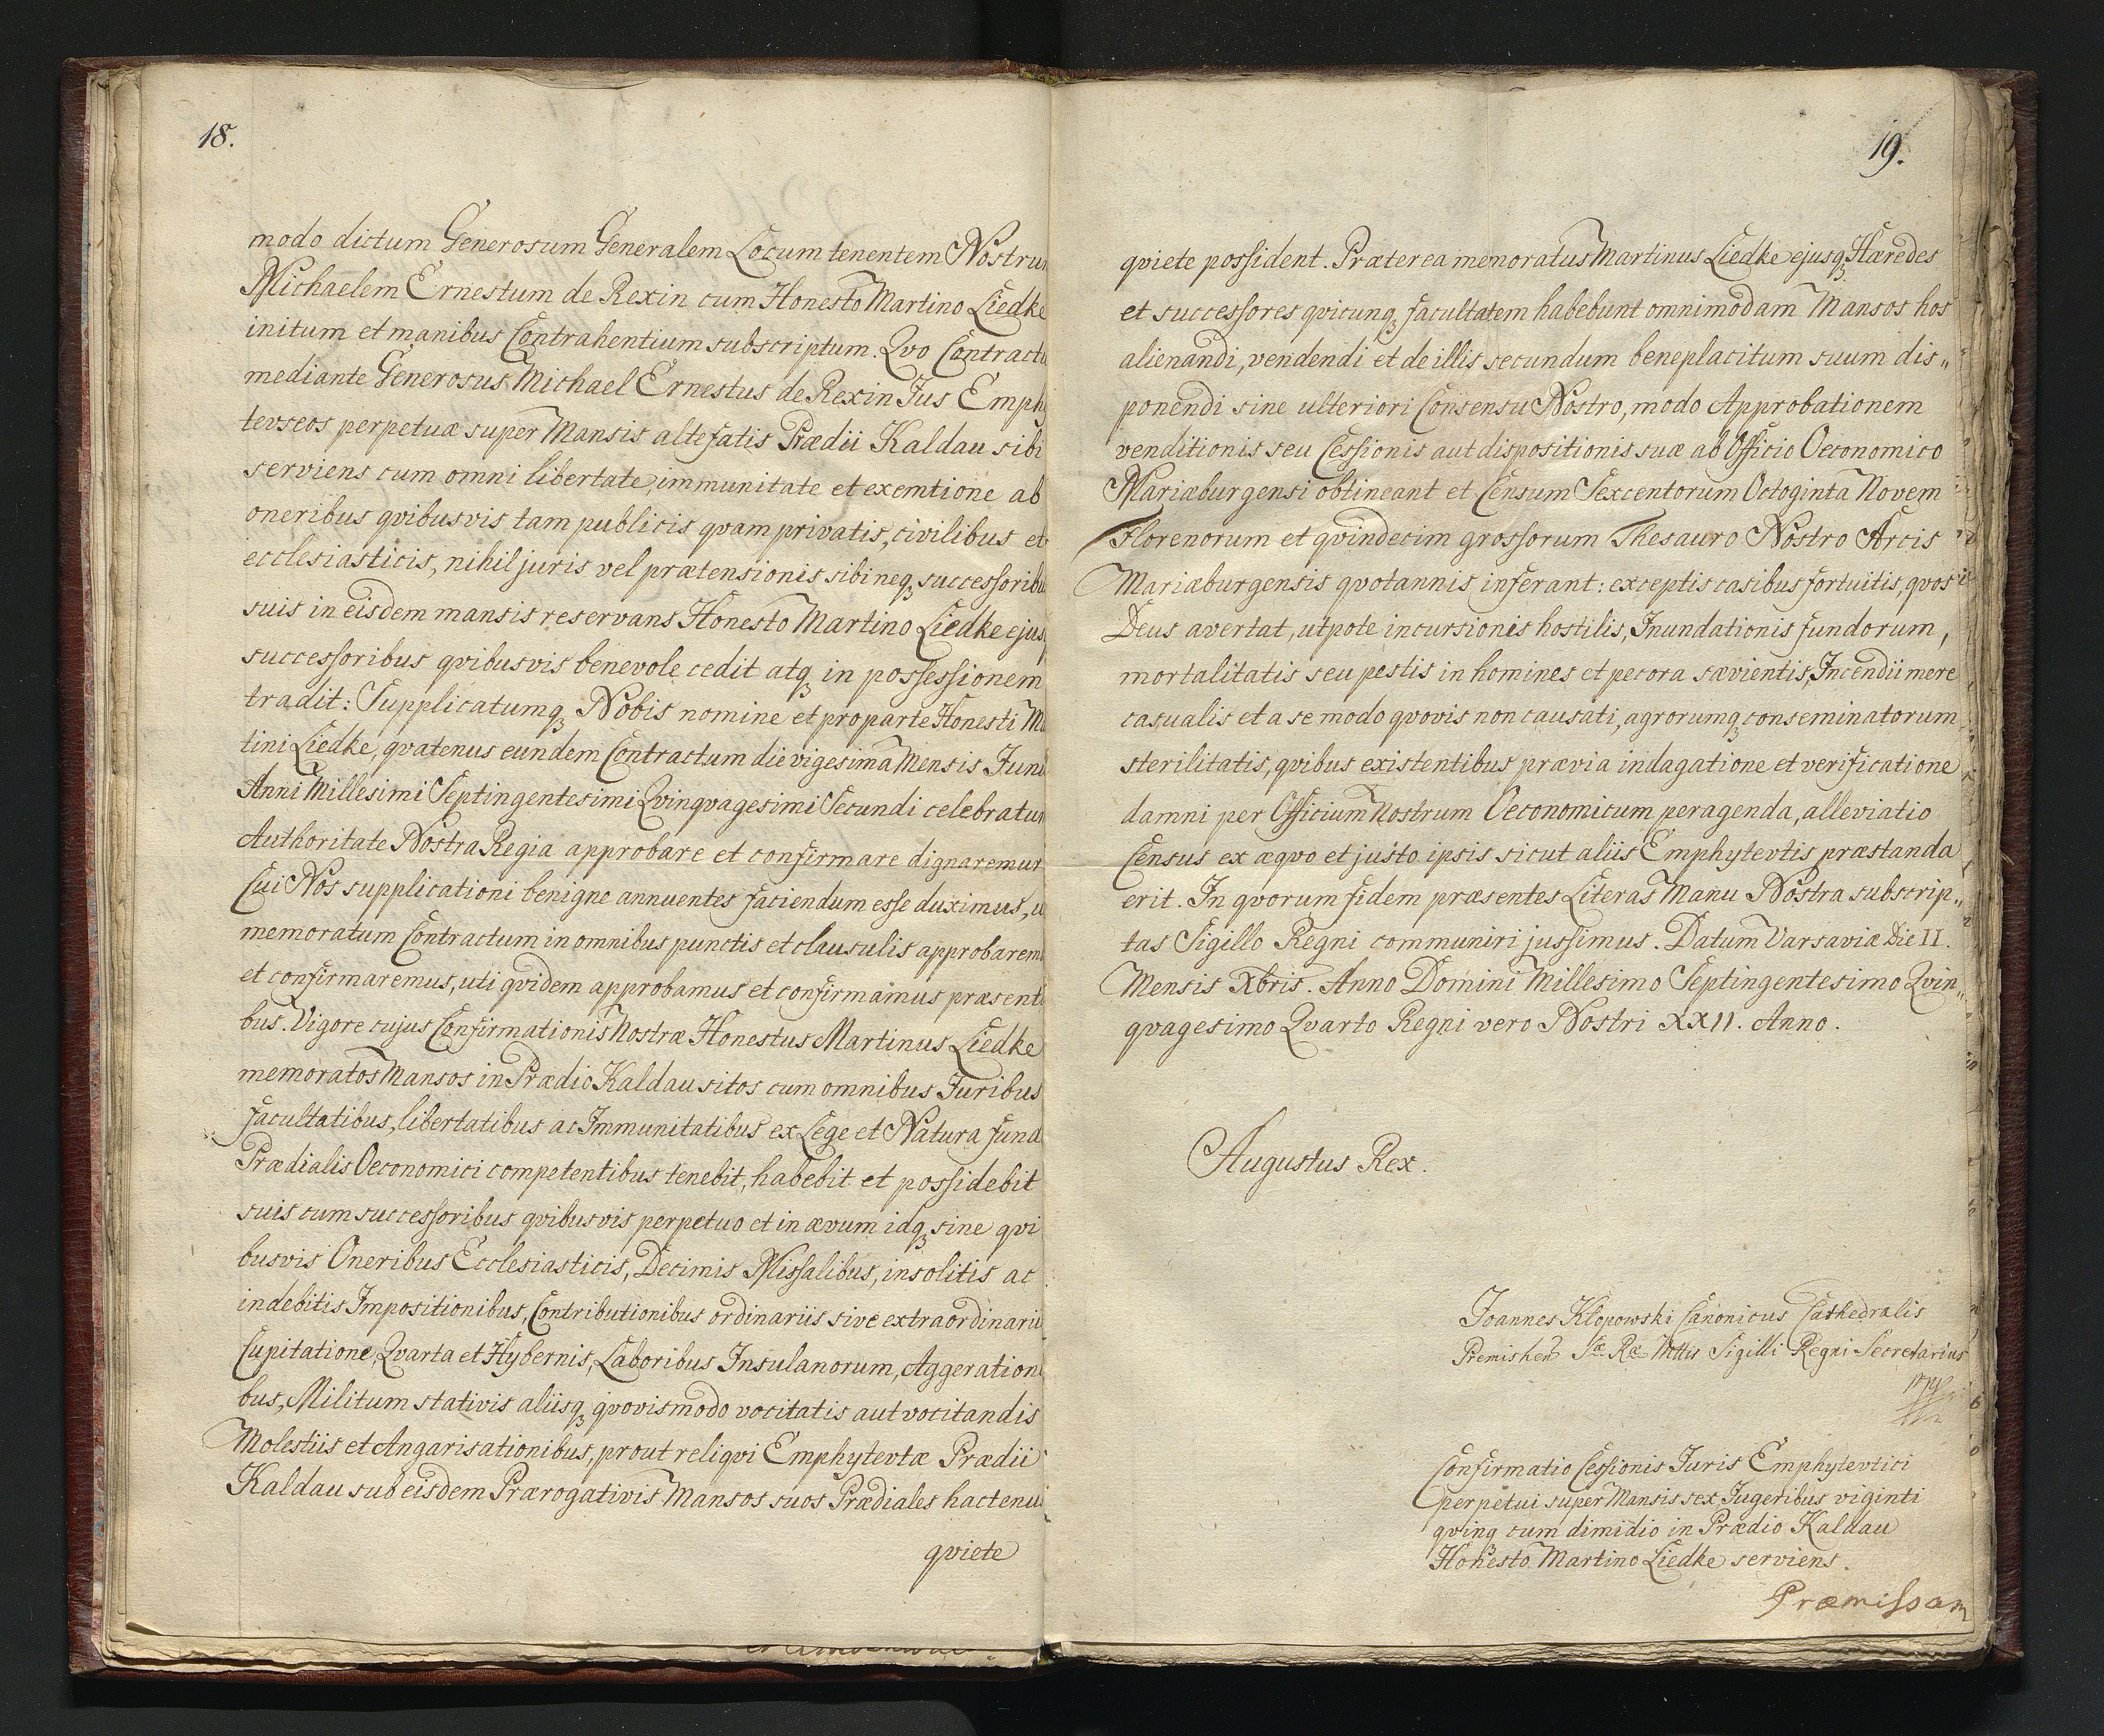 18.
modo dictum Generosum Generalem Locum tenentem Nostrum
Michaelem Ernestum de Rexin cum Honesto Martino Liedke
initum et manibus Contrahentium subscriptum. Qvo Contractu
mediante Generosus Michael Ernestus de Rexin Jus Emphy
tevseos perpetuæ super Mansis alte fatis Prædii Kaldau sibi
serviens cum omni libertate, immunitate et exemtione ab
oneribus qvibusvis tam publicis qvam privatis, civilibus et
ecclesiasticis, nihil juris vel prætensionis sibi neqꝫ successoribu
suis in eisdem mansis reservans Honesto Martino Liedke ejusqꝫ
successoribus qvibusvis benevole cedit atqꝫ in possessionem
tradit: Supplicatumqꝫ Nobis nomine et pro parte Honesti Ma
tini Liedke, qvatenus eundem Contractum die vigesima Mensis Juni
Anni Millesimi Septingentesimi Qvinqvagesimi Secundi celebratum
Authoritate Nostra Regia approbare et confirmare dignaremur
Cui Nos supplicationi benigne annuentes faciendum esse duximus, u
memoratum Contractum in omnibus punctis et clausulis approbarem
et confirmaremus, uti qvidem approbamus et confirmamus præsenti
bus. Vigore cujus Confirmationis Nostræ Honestus Martinus Liedke
memoratos Mansos in Prædio Kaldau sitos cum omnibus Juribus
facultatibus, libertatibus ac Immunitatibus ex Lege et Natura fund
Prædialis Oeconomici competentibus tenebit, habebit et possidebit
suis cum successoribus qvibusvis perpetuo et in ævum idqꝫ sine qvi
busvis Oneribus Ecclesiasticis, Decimis Missalibus, insolitis ac
indebitis Impositionibus, Contributionibus ordinariis sive extraordinarii
Cupitatione, Qvarta et Hybernis, Laboribus Insulanorum, Aggerationi
bus, Militum stativis aliisqꝫ qvovismodo vocitatis aut vocitandis
Molestiis et Angarisationibus, prout reliqvi Emphytevtæ Prædii
Kaldau sub eisdem Prærogativis Mansos suos Prædiales hactenus
qviete
19.
qviete possident. Præterea memoratus Martinus Liedke ejusqꝫ Hæredes
et successores qvicunqꝫ facultatem habebunt omnimodam Mansos hos
alienandi, vendendi et de illis secundum beneplacitum suum dis„
ponendi sine ulteriori Consensu Nostro, modo Approbationem
venditionis seu Cessionis aut dispositionis suæ ab Officio Oeconomico
Mariæburgensi obtineant et Censum Sexcentorum Octoginta Novem
Florenorum et qvindecim grossorum Thesauro Nostro Arcis
Mariæburgensis qvotannis inferant: exceptis casibus fortuitis, qvos
Deus avertat, utpote incursionis hostilis, Inundationis fundorum,
mortalitatis seu pestis in homines et pecora sævientis, Incendii mere
casualis et a se modo qvovis non causati, agrorumqꝫ conseminatorum
sterilitatis, qvibus existentibus prævia indagatione et verificatione
damni per Officium Nostrum Oeconomicum peragenda, alleviatio
Census ex æqvo et justo ipsis sicut aliis Emphytevtis præstanda
erit. In qvorum fidem præsentes Literas Manu Nostra subscrip„
tas Sigillo Regni communiri jussimus. Datum Varsaviæ Die II.
Mensis Xbris. Anno Domini Millesimo Septingentesimo Qvin„
qvagesimo Qvarto Regni vero Nostri XXII. Anno.
Augustus Rex.
Joannes Kłopowski Canonicus Cathedralis
Premislien Sæ Ræ Mttis Sigilli Regni Secretarius
mp
Confirmatio Cessionis Juris Emphytevtici
perpetui super Mansis sex Jugeribus viginti
qvinqꝫ cum dimidio in Prædio Kaldau
Honesto Martino Liedke serviens.
Præmissam